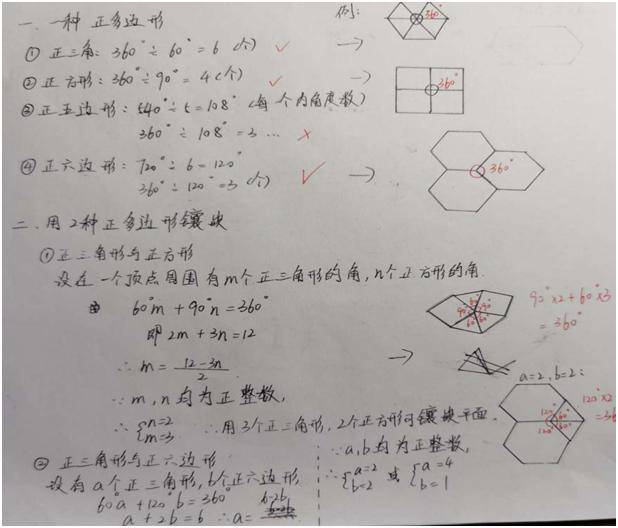 一.一种正多边形
例:
360°
① 正三角: 360°÷60°=6(个) ✓ →
② 正方形: 360°÷90°=4(个) ✓ →
360°
③ 正五边形: 540°÷5=108°(每个内角度数)
360°÷108°=3… ×
④ 正六边形: 720°÷6=120°
360°÷120°=3(个) ✓ →
360°
二.用2种正多边形镶块
① 正三角形与正方形
设在一个顶点周围有m个正三角形的角,n个正方形的角.
60°m+90°n=360°
即2m+3n=12
90°×2+60°×3
=360°
90° 60° 90° 60° 60°
∴m=12-3n/2
→
∵m,n均为正整数,
∴{n=2 m=3 ∴用3个正三角形,2个正方形可镶块平面.
a=2,b=2:
120°×2
=36
120° 60° 120° 60°
② 正三角形与正六边形
设有a个正三角形,b个正六边形
60°a+120°b=360°
a+2b=6 ∴a=6-2b,
∵a,b均为正整数,
∴{a=2 b=2 或 {a=4 b=1